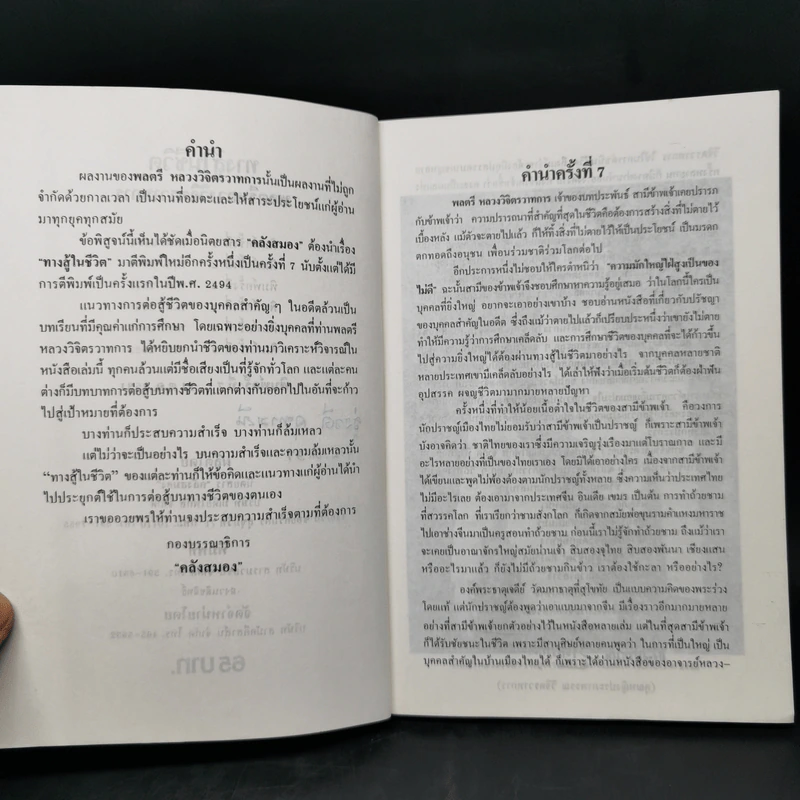 คำนำ
ผลงานของพลตรี หลวงวิจิตรวาทการนั้นเป็นผลงานที่ไม่ถูก
จำกัดด้วยกาลเวลา เป็นงานที่อมตะและให้สาระประโยชน์แก่ผู้อ่าน
มาทุกยุคทุกสมัย
ข้อพิสูจน์นี้เห็นได้ชัดเมื่อนิตยสาร "คลังสมอง" ต้องนำเรื่อง
"ทางสู้ในชีวิต" มาตีพิมพ์ใหม่อีกครั้งหนึ่งเป็นครั้งที่ 7 นับตั้งแต่ได้มี
การตีพิมพ์เป็นครั้งแรกในปีพ.ศ. 2494
แนวทางการต่อสู้ชีวิตของบุคคลสำคัญ ๆ ในอดีตล้วนเป็น
บทเรียนที่มีคุณค่าแก่การศึกษา โดยเฉพาะอย่างยิ่งบุคคลที่ท่านพลตรี
หลวงวิจิตรวาทการ ได้หยิบยกนำชีวิตของท่านมาวิเคราะห์วิจารณ์ใน
หนังสือเล่มนี้ ทุกคนล้วนแต่มีชื่อเสียงเป็นที่รู้จักทั่วโลก และแต่ละคน
ต่างก็มีบทบาทการต่อสู้บนทางชีวิตที่แตกต่างกันออกไปในอันที่จะก้าว
ไปสู่เป้าหมายที่ต้องการ
บางท่านก็ประสบความสำเร็จ บางท่านก็ล้มเหลว
แต่ไม่ว่าจะเป็นอย่างไร บนความสำเร็จและความล้มเหลวนั้น
"ทางสู้ในชีวิต" ของแต่ละท่านก็ให้ข้อคิดและแนวทางแก่ผู้อ่านได้นำ
ไปประยุกต์ใช้ในการต่อสู้บนทางชีวิตของตนเอง
เราขออวยพรให้ท่านจงประสบความสำเร็จตามที่ต้องการ
กองบรรณาธิการ
"คลังสมอง"
คำนำครั้งที่ 7
พลตรี หลวงวิจิตรวาทการ เจ้าของบทประพันธ์ สามีข้าพเจ้าเคยปรารภ
กับข้าพเจ้าว่า ความปรารถนาที่สำคัญที่สุดในชีวิตคือต้องการสร้างสิ่งที่ไม่ตายไว้
เบื้องหลัง แม้ตัวจะตายไปแล้ว ก็ให้ทิ้งสิ่งที่ไม่ตายไว้ให้เป็นประโยชน์ เป็นมรดก
ตกทอดถึงอนุชน เพื่อนร่วมชาติร่วมโลกต่อไป
อีกประการหนึ่งไม่ชอบให้ใครตำหนิว่า "ความมักใหญ่ใฝ่สูงเป็นของ
ไม่ดี" ฉะนั้นสามีของข้าพเจ้าจึงชอบศึกษาหาความรู้อยู่เสมอ ว่าในโลกนี้ใครเป็น
บุคคลที่ยิ่งใหญ่ อยากจะเอาอย่างเขาบ้าง ชอบอ่านหนังสือที่เกี่ยวกับปรัชญา
ของบุคคลสำคัญในอดีต ซึ่งถึงแม้ว่าตายไปแล้วก็เปรียบประหนึ่งว่าเขายังไม่ตาย
ทำให้มีความรู้ว่าการศึกษาเคล็ดลับ และการศึกษาชีวิตของบุคคลที่จะได้ก้าวขึ้น
ไปสู่ความยิ่งใหญ่ได้ต้องผ่านทางสู้ในชีวิตมาอย่างไร จากบุคคลหลายชาติ
หลายประเทศเขามีเคล็ดลับอย่างไร ได้เล่าให้ฟังว่าเมื่อเริ่มต้นชีวิตก็ต้องฝ่าฟัน
อุปสรรค ผจญชีวิตมามากมายหลายปัญหา
ครั้งหนึ่งที่ทำให้น้อยเนื้อต่ำใจในชีวิตของสามีข้าพเจ้า คือวงการ
นักปราชญ์เมืองไทยไม่ยอมรับว่าสามีข้าพเจ้าเป็นปราชญ์ ก็เพราะสามีข้าพเจ้า
บังอาจคิดว่า ชาติไทยของเราซึ่งมีความเจริญรุ่งเรืองมาแต่โบราณกาล และมี
อะไรหลายอย่างที่เป็นของไทยเราเอง โดยมิได้เอาอย่างใคร เนื่องจากสามีข้าพเจ้า
ได้เขียนและพูดไม่พ้องต้องตามนักปราชญ์ทั้งหลาย ซึ่งความเห็นว่าประเทศไทย
ไม่มีอะไรเลย ต้องเอามาจากประเทศจีน อินเดีย เขมร เป็นต้น การทำถ้วยชาม
ที่สวรรคโลก ที่เราเรียกว่าชามสังกโลก ก็เกิดจากสมัยพ่อขุนรามคำแหงมหาราช
ไปเอาช่างจีนมาเป็นครูสอนทำถ้วยชาม ก่อนนี้เราไม่รู้จักทำถ้วยชาม ถึงแม้ว่าเรา
จะเคยเป็นอาณาจักรใหญ่สมัยน่านเจ้า สิบสองจุไทย สิบสองพันนา เชียงแสน
หรืออะไรมาแล้ว ก็ยังไม่มีถ้วยชามกินข้าว เราต้องใช้กะลา หรืออย่างไร?
องค์พระธาตุเจดีย์ วัดมหาธาตุที่สุโขทัย เป็นแบบความคิดของพระร่วง
โดยแท้ แต่นักปราชญ์ต้องพูดว่าเอาแบบมาจากจีน มีเรื่องราวอีกมากมายหลาย
อย่างที่สามีข้าพเจ้ายกตัวอย่างไว้ในหนังสือหลายเล่ม แต่ในที่สุดสามีข้าพเจ้า
ก็ได้รับชัยชนะในชีวิต เพราะมีสานุศิษย์หลายคนพูดว่า ในการที่เป็นใหญ่ เป็น
บุคคลสำคัญในบ้านเมืองไทยได้ ก็เพราะได้อ่านหนังสือของอาจารย์หลวง–